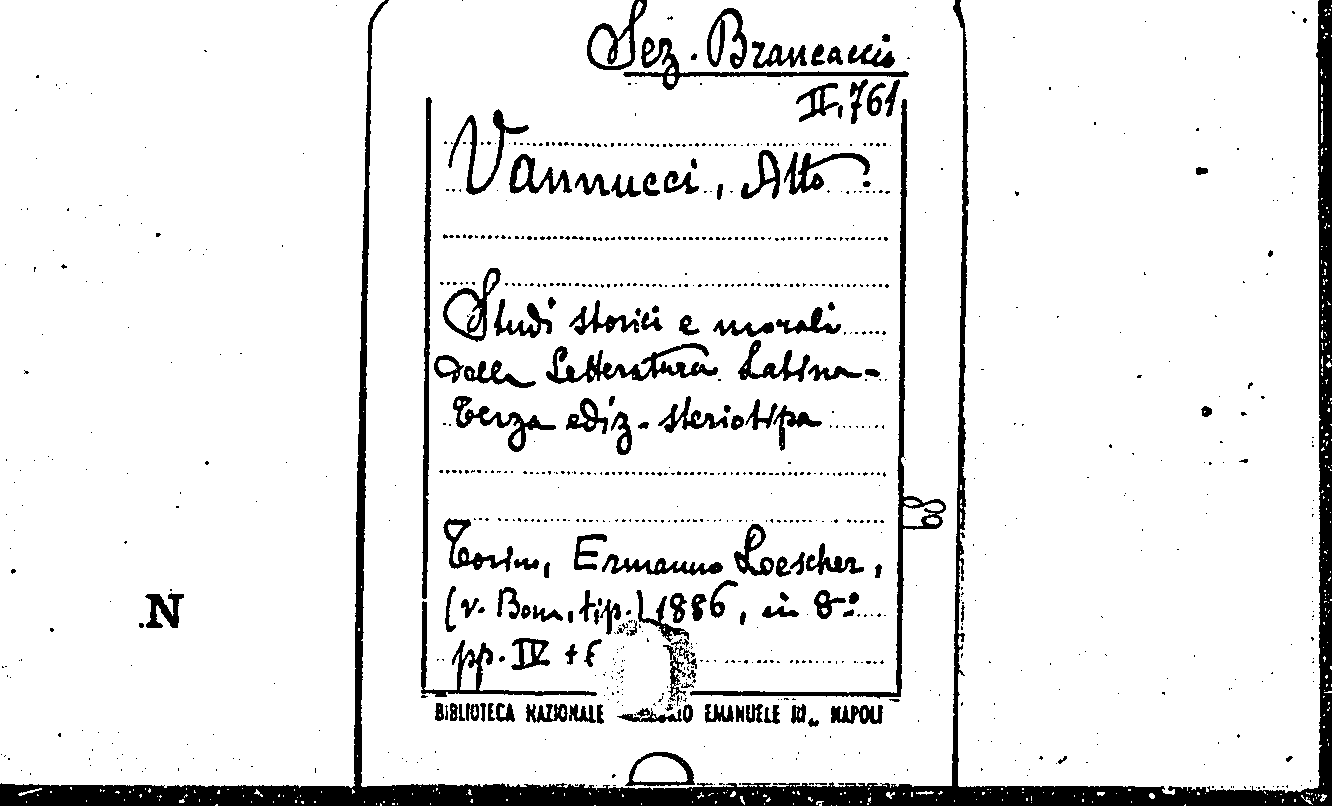 Sez. Brancaccio
II, 761
Vannucci, Atto
Studi storici e morali
della Letteratura Latina-
Terza ediz. steriotipa
Torino, Ermanno Loescher,
(v. Bona, tip.) 1886, in 8º
pp. IV +
N
BIBLIOTECA NAZIONALE EMANUELE III., NAPOLI